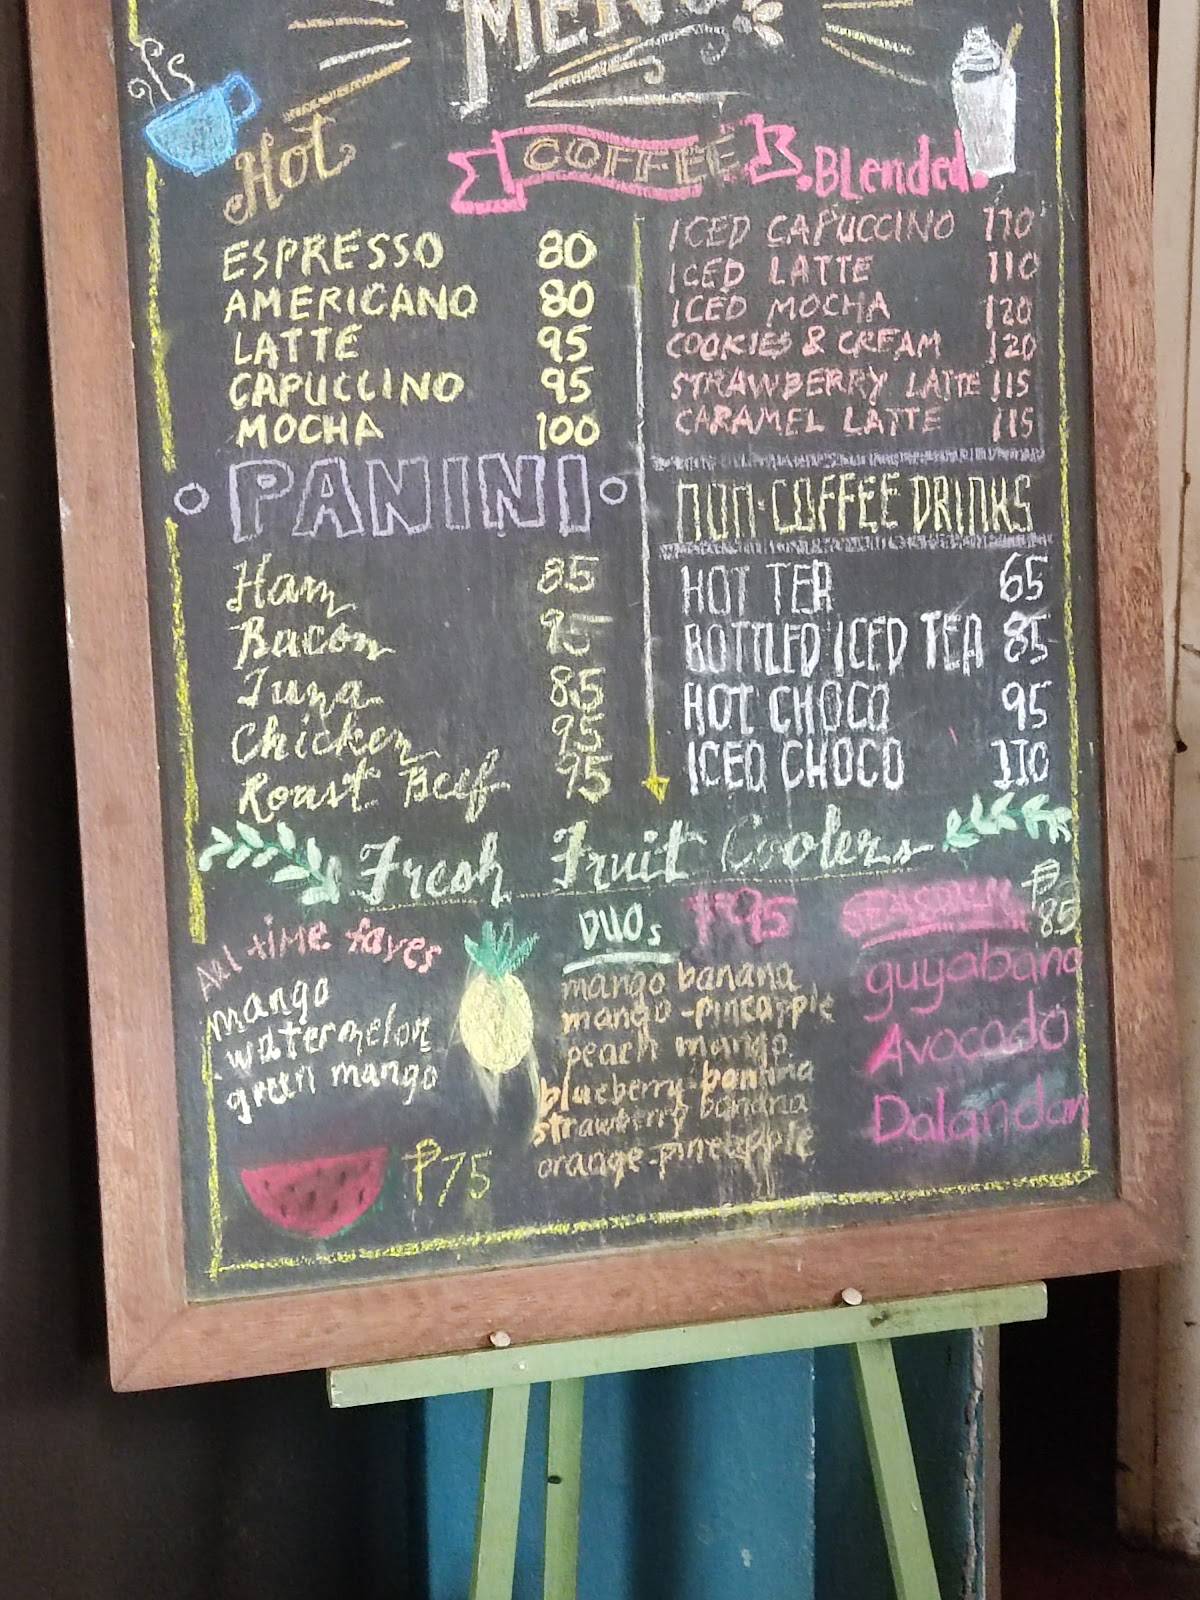 MENU
Hot
COFFEE
.Blended.
ESPRESSO 80
AMERICANO 80
LATTE 95
CAPUCCINO 95
MOCHA 100
ICED CAPUCCINO 110
ICED LATTE 110
ICED MOCHA 120
COOKIES & CREAM 120
STRAWBERRY LATTE 115
CARAMEL LATTE 115
PANINI
Ham 85
Bacon 95
Tuna 85
Chicken 95
Roast Beef 95
NON-COFFEE DRINKS
HOT TEA 65
BOTTLED ICED TEA 85
HOT CHOCO 95
ICED CHOCO 110
Fresh Fruit Coolers
All time faves
mango
watermelon
green mango
₱75
DUOs ₱95
mango banana
mango-pineapple
peach mango
blueberry-banana
strawberry banana
orange-pineapple
SEASONAL ₱85
guyabano
Avocado
Dalandan